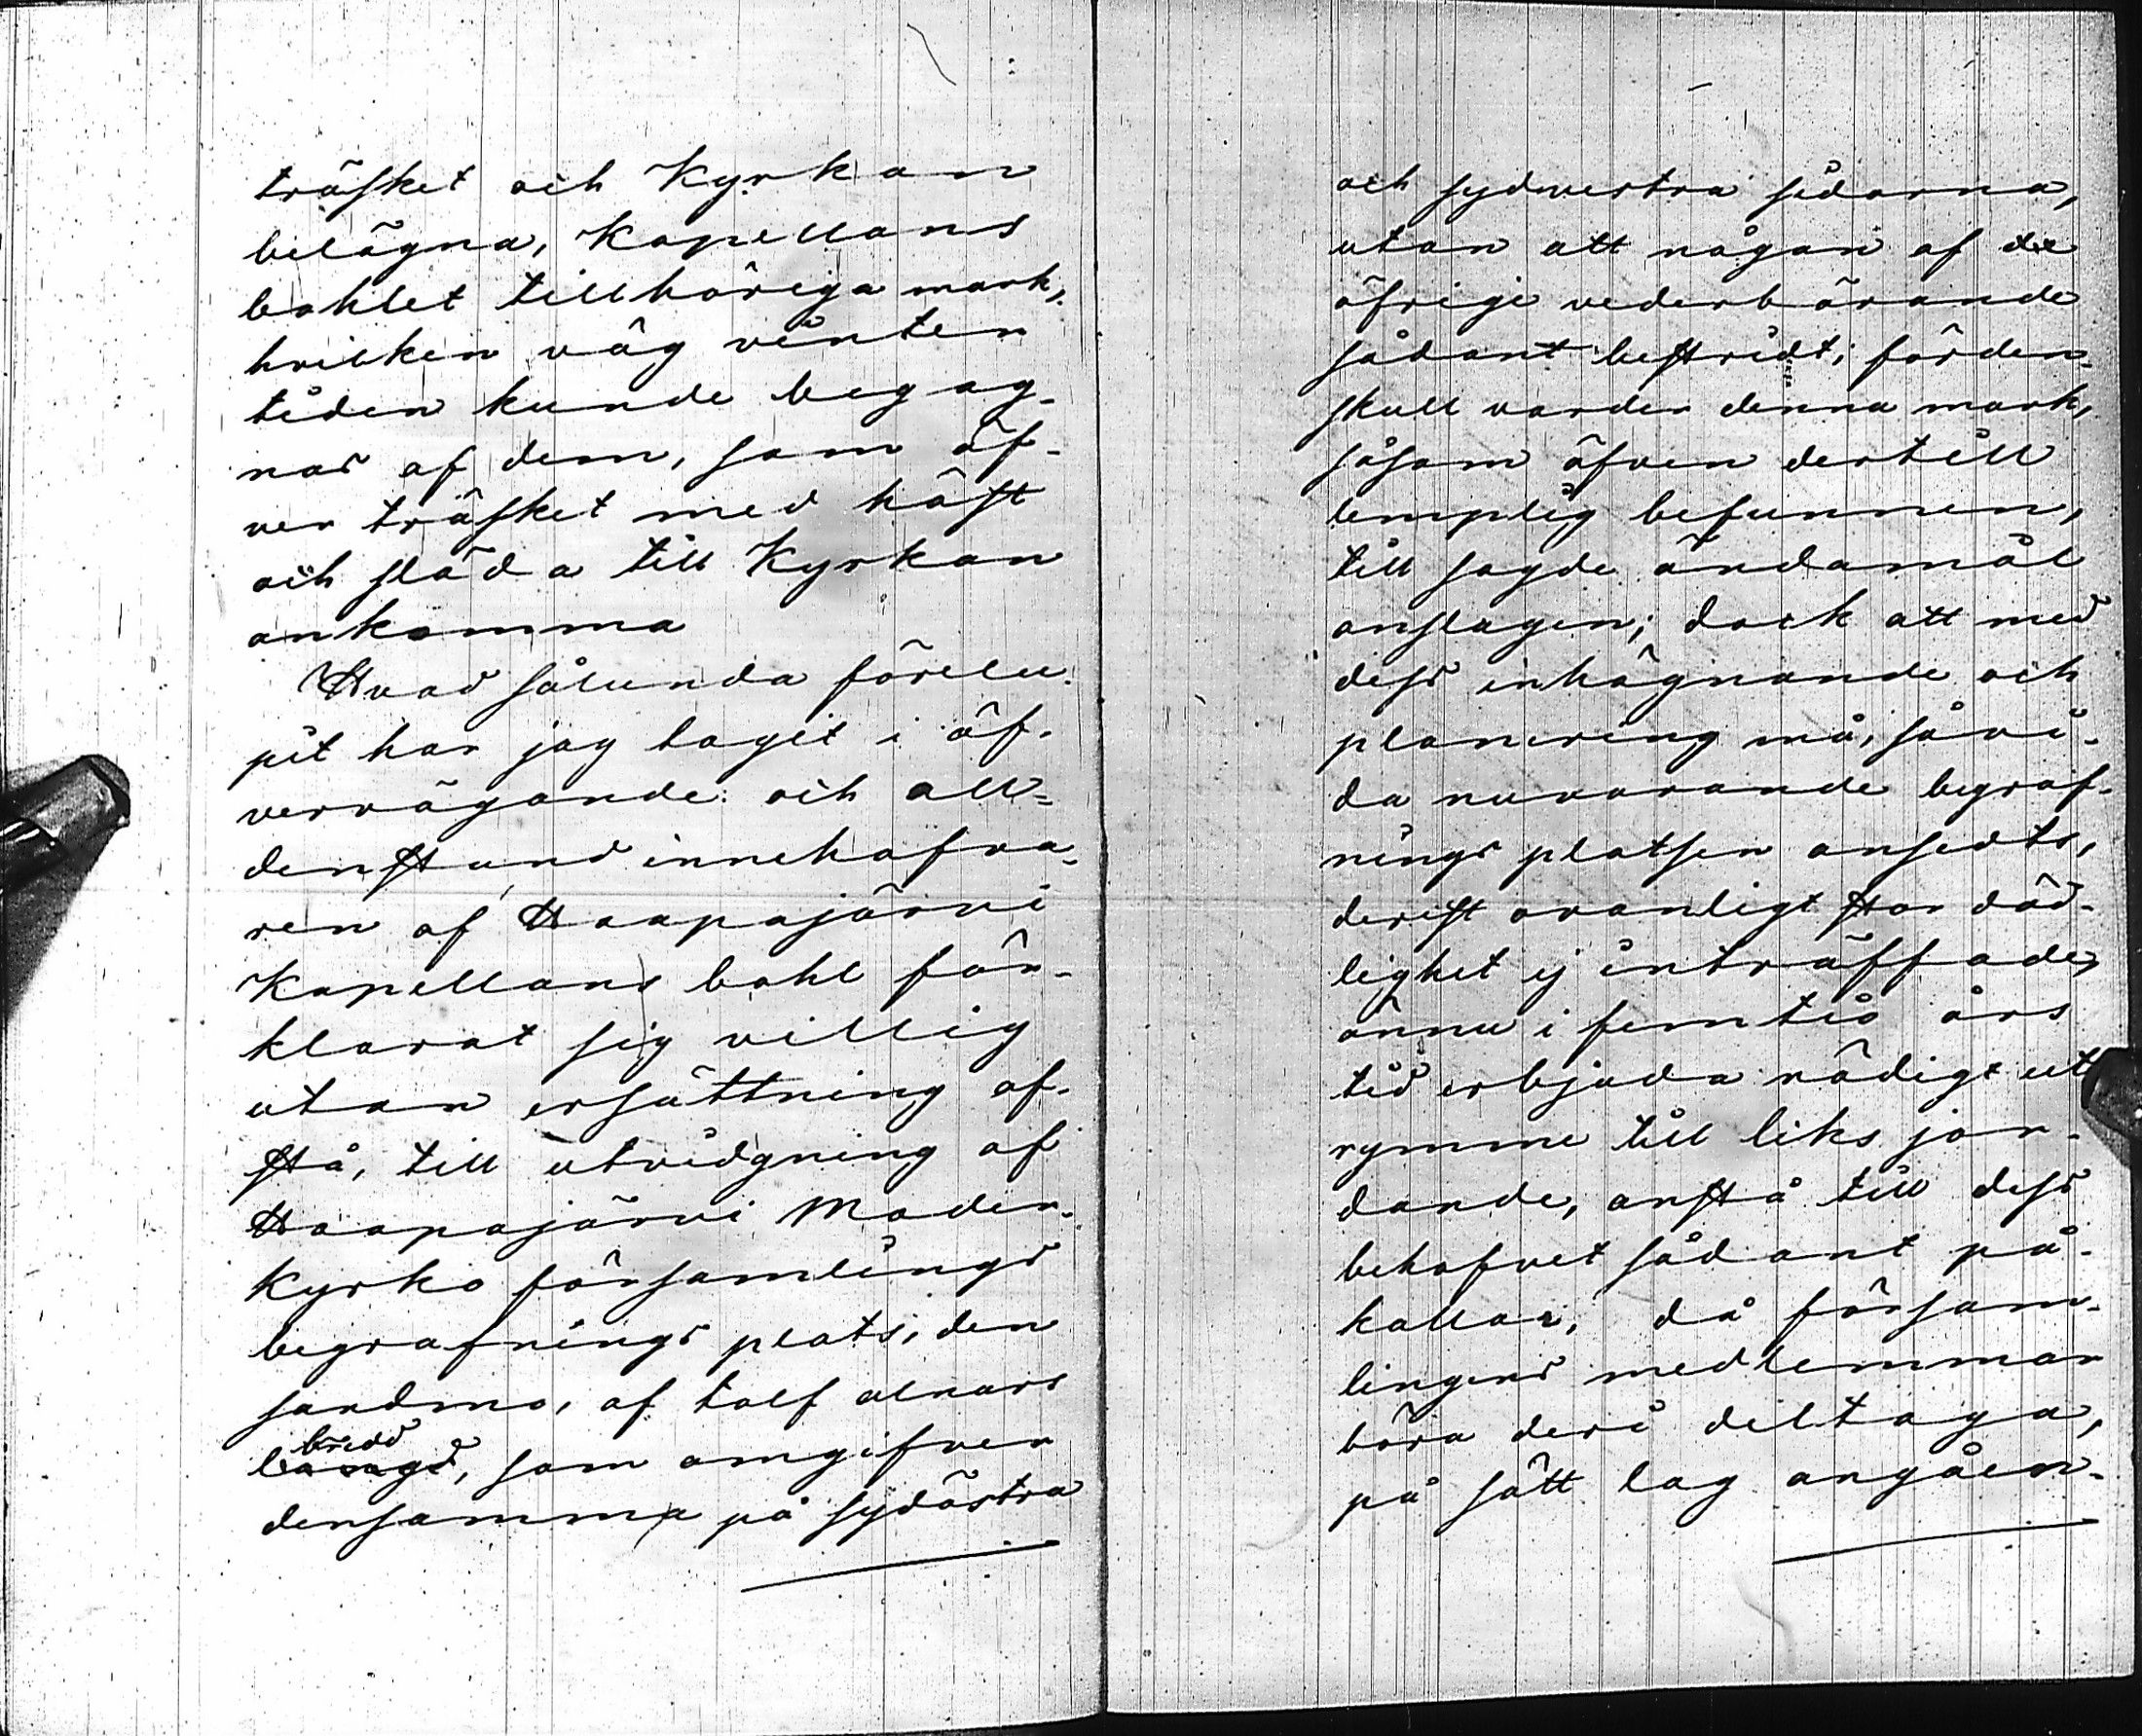 träsket och Kyrkan
belägna, Kapellans
bohlet tillhöriga mark,
hvilken väg vinter
tiden kunde begag-
nas af dem, som öf-
ver träsket med häst
och släda till Kyrkan
ankomma
Hvad sålunda förelu-
pit har jag tagit i öf-
vervägande: och all-
denstund innehafva-
ren af Haapajärvi
Kapellans bohl för-
klarat sig villig
utan ersättning af-
stå, till utvidgning af
Haapajärvi Moder-
kyrko församlings
begrafnings plats, den
sandmo, af tolf alnars
bredd
längd, som omgifver
densamma på sydöstra
och sydvestra sidorna,
utan att någon af de
öfrige vederbörande
sådant bestridt; förden-
skull varder denna mark,
såsom äfven dertill
lemplig befunnen,
till sagde ändamål
anslagen; dock att med
dess inhägnande och
planering må, såvi-
da nuvarande begraf-
nings platsen ansedts,
derest ovanligt stor död-
lighet ej inträffade,
ännu i femtio års
tid erbjuda nödigt ut
rymme till liks jor-
dande, anstå till dess
behofvet sådant på-
kallar, då försam-
lingens medlemmar
böra deri deltaga,
på sätt lag angåen-